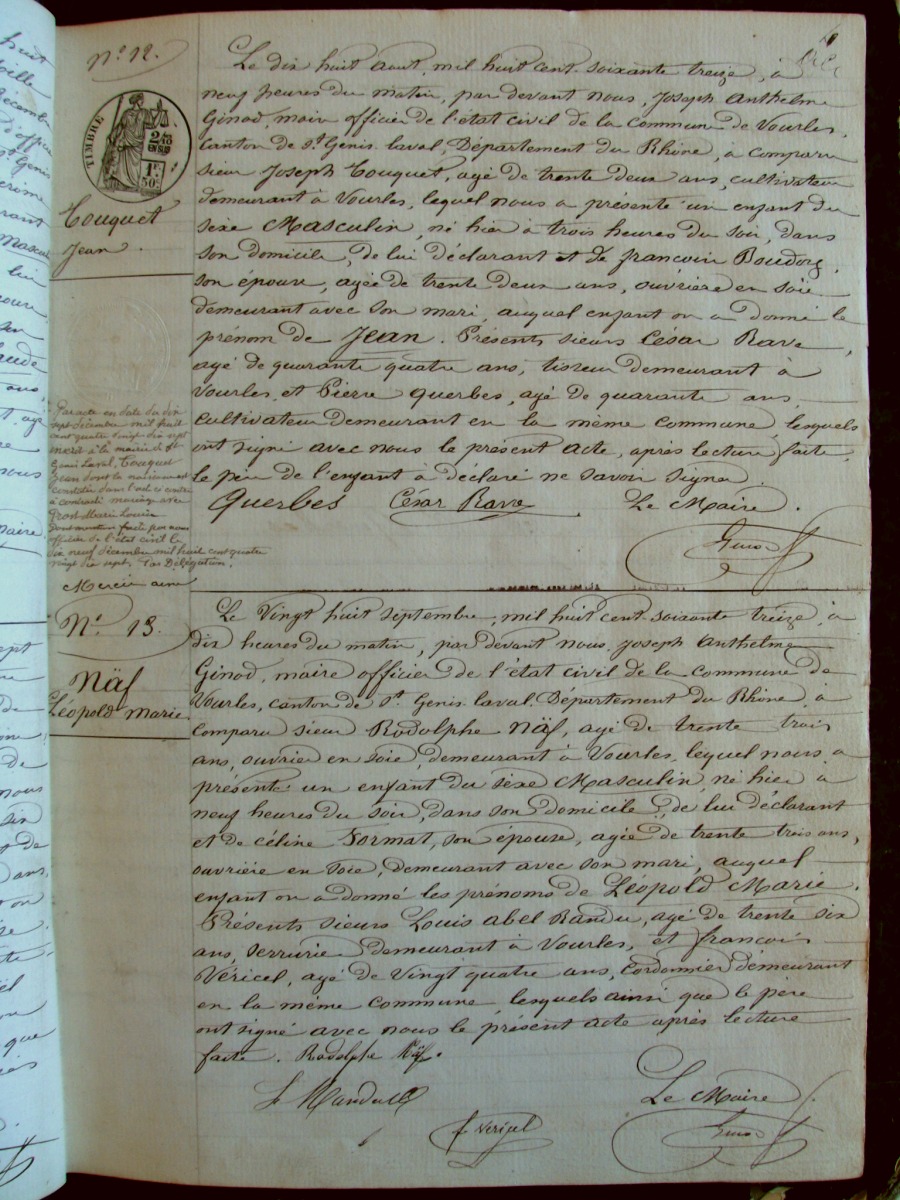 N° 12.
TIMBRE
2/10
EN SUS
1F.
50c.
Couquet
Jean.
Le dix huit aout, mil huit cent soixante treize, à
neuf heures du matin, par devant nous, Joseph Anthelme
Ginod, maire officier de l'état civil de la commune de Vourles,
Canton de St Genis laval, Département du Rhône, à comparu
sieur Joseph Couquet, agé de trente deux ans, cultivateur
demeurant à Vourles, lequel nous a présenté un enfant du
sèxe Masculin, né hier à trois heures du soir, dans
son domicile, de lui déclarant et de francoise
son épouse, agée de trente deux ans, ouvrière en soie
demeurant avec son mari, auquel enfant on a donné le
prénom de Jean. Présents sieurs César Rave,
agé de quarante quatre ans, tisseur demeurant à
Vourles, et Pierre Querbes, agé de quarante ans,
cultivateur demeurant en la même commune, lesquels
ont signé avec nous le présent acte, après lecture faite,
le père de l'enfant à déclaré ne savoir signer.
Querbes César Rave Le Maire.
Ginod
Par acte en date du dix
sept décembre mil huit
cent quatre vingt dix sept
inscrit à la mairie de St
Genis Laval, Couquet
Jean dont la naissance est
constatée dans l'acte ci contre
à contracté mariage avec
Prost Marie Louise
dont mention faite par nous
officier de l'état civil le
dix neuf décembre mil huit cent quatre
vingt dix sept. Par Délégation.
N° 13.
Näf
Léopold Marie.
Le Vingt huit septembre, mil huit cent soixante treize, à
dix heures du matin, par devant nous Joseph Anthelme
Ginod, maire officier de l'état civil de la commune de
Vourles, canton de St Genis laval, Département du Rhône, à
comparu sieur Rodolphe Näf, agé de trente trois
ans, ouvrier en soie, demeurant à Vourles, lequel nous a
présenté un enfant du sèxe Masculin, né hier à
neuf heures du soir, dans son domicile, de lui déclarant
et de céline Format, son épouse, agée de trente trois ans,
ouvrière en soie, demeurant avec son mari, auquel
enfant on a donné les prénoms de Léopold Marie.
Présents sieurs Louis abel Randu, agé de trente six
ans, serrurier demeurant à Vourles, et francois
Véricel, agé de Vingt quatre ans, Cordonnier demeurant
en la même commune lesquels ainsi que le pere
ont signé avec nous le présent acte après lecture
faite. Rodolphe Näf.
Le Maire
Ginod